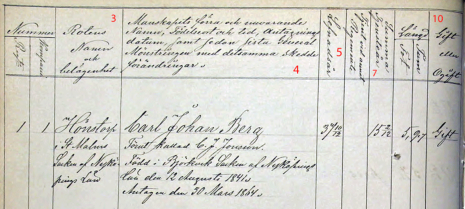 3
Nummer
Rotens
Namn
och
belägenhet
Manskapets förra och nuvarande
Namn, Födelseort och tid, Antagnings
datum, jemt sedan sista General
Mönstring med detsamma skedde
förändringar.
4
5
7
10
Längd
Fot
Tum
Gift
eller
Ogift
1
1
Hörstorp
i St. Malms
Socken af Nykö-
pings Län
Carl Johan Berg
Förut kallad C. J. Jonsson.
Född i Björkvik Socken af Nyköpings
Län den 12 Augusti 1841.
Antagen den 30 Mars 1864.
5,97
Gift